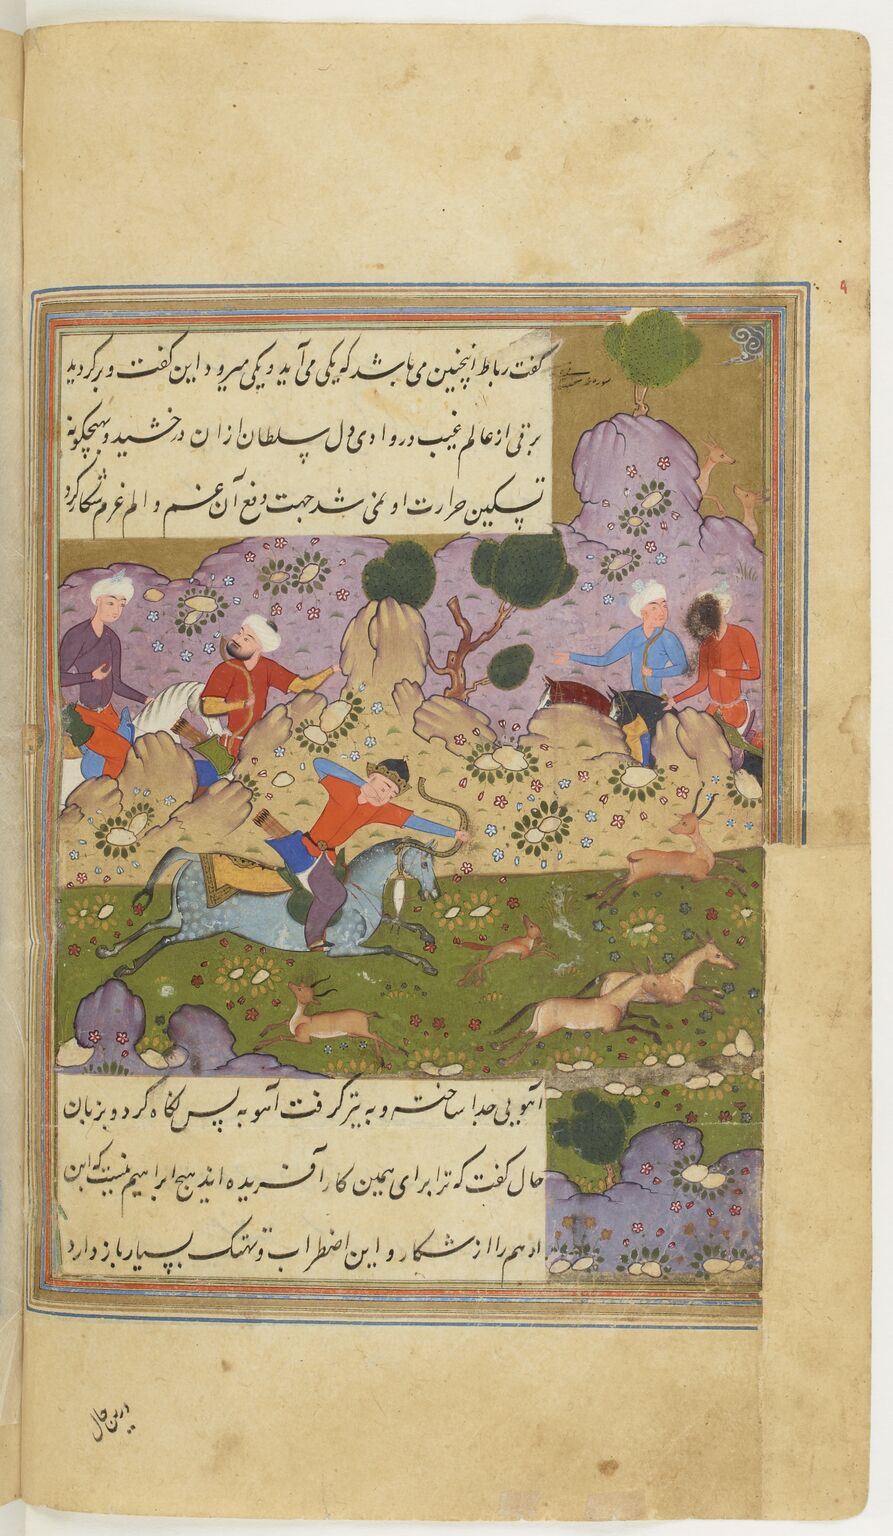 گفت رباط اینچنین می باشد که یکی می آید و یکی میرود این گفت و برگردید
برقی از عالم غیب در وادی دل سلطان ازان درخشید و بهیچگونه
تسکین حرارت او نمی شد جهت دفع آن غم و الم عزم شکار کرد
آهویی جدا ساخته و به تیر گرفت آهو به پس نگاه کرد و بزبان
حال گفت که ترا برای همین کار آفریده اند هیچ ابراهیم نیست که ابن
ادهم را از شکار و این اضطراب و تهتک بسیار باز دارد
درین حال